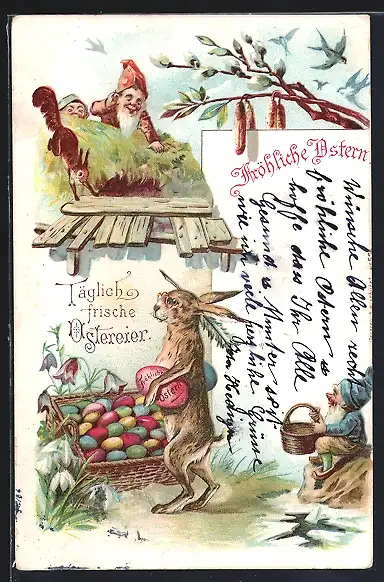 Fröhliche Ostern
Täglich
frische
Ostereier.
Fröhliche
Ostern
Wünsche Allen recht
fröhliche Ostern u
hoffe das Ihr Alle
Gesund u Munter seyt
wie ich viele Grüsse